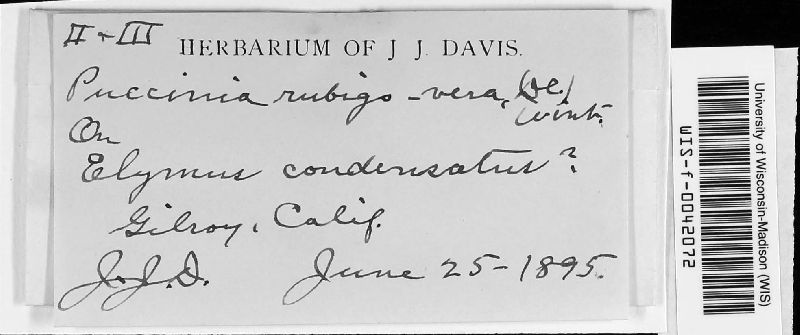 II + III
HERBARIUM OF J J. DAVIS.
Puccinia rubigo-vera, (DC.)
Wint.
On
Elymus condensatus?
Gilroy, Calif.
J.J.D. June 25-1895.
University of Wisconsin-Madison (WIS)
WIS-f-0042072